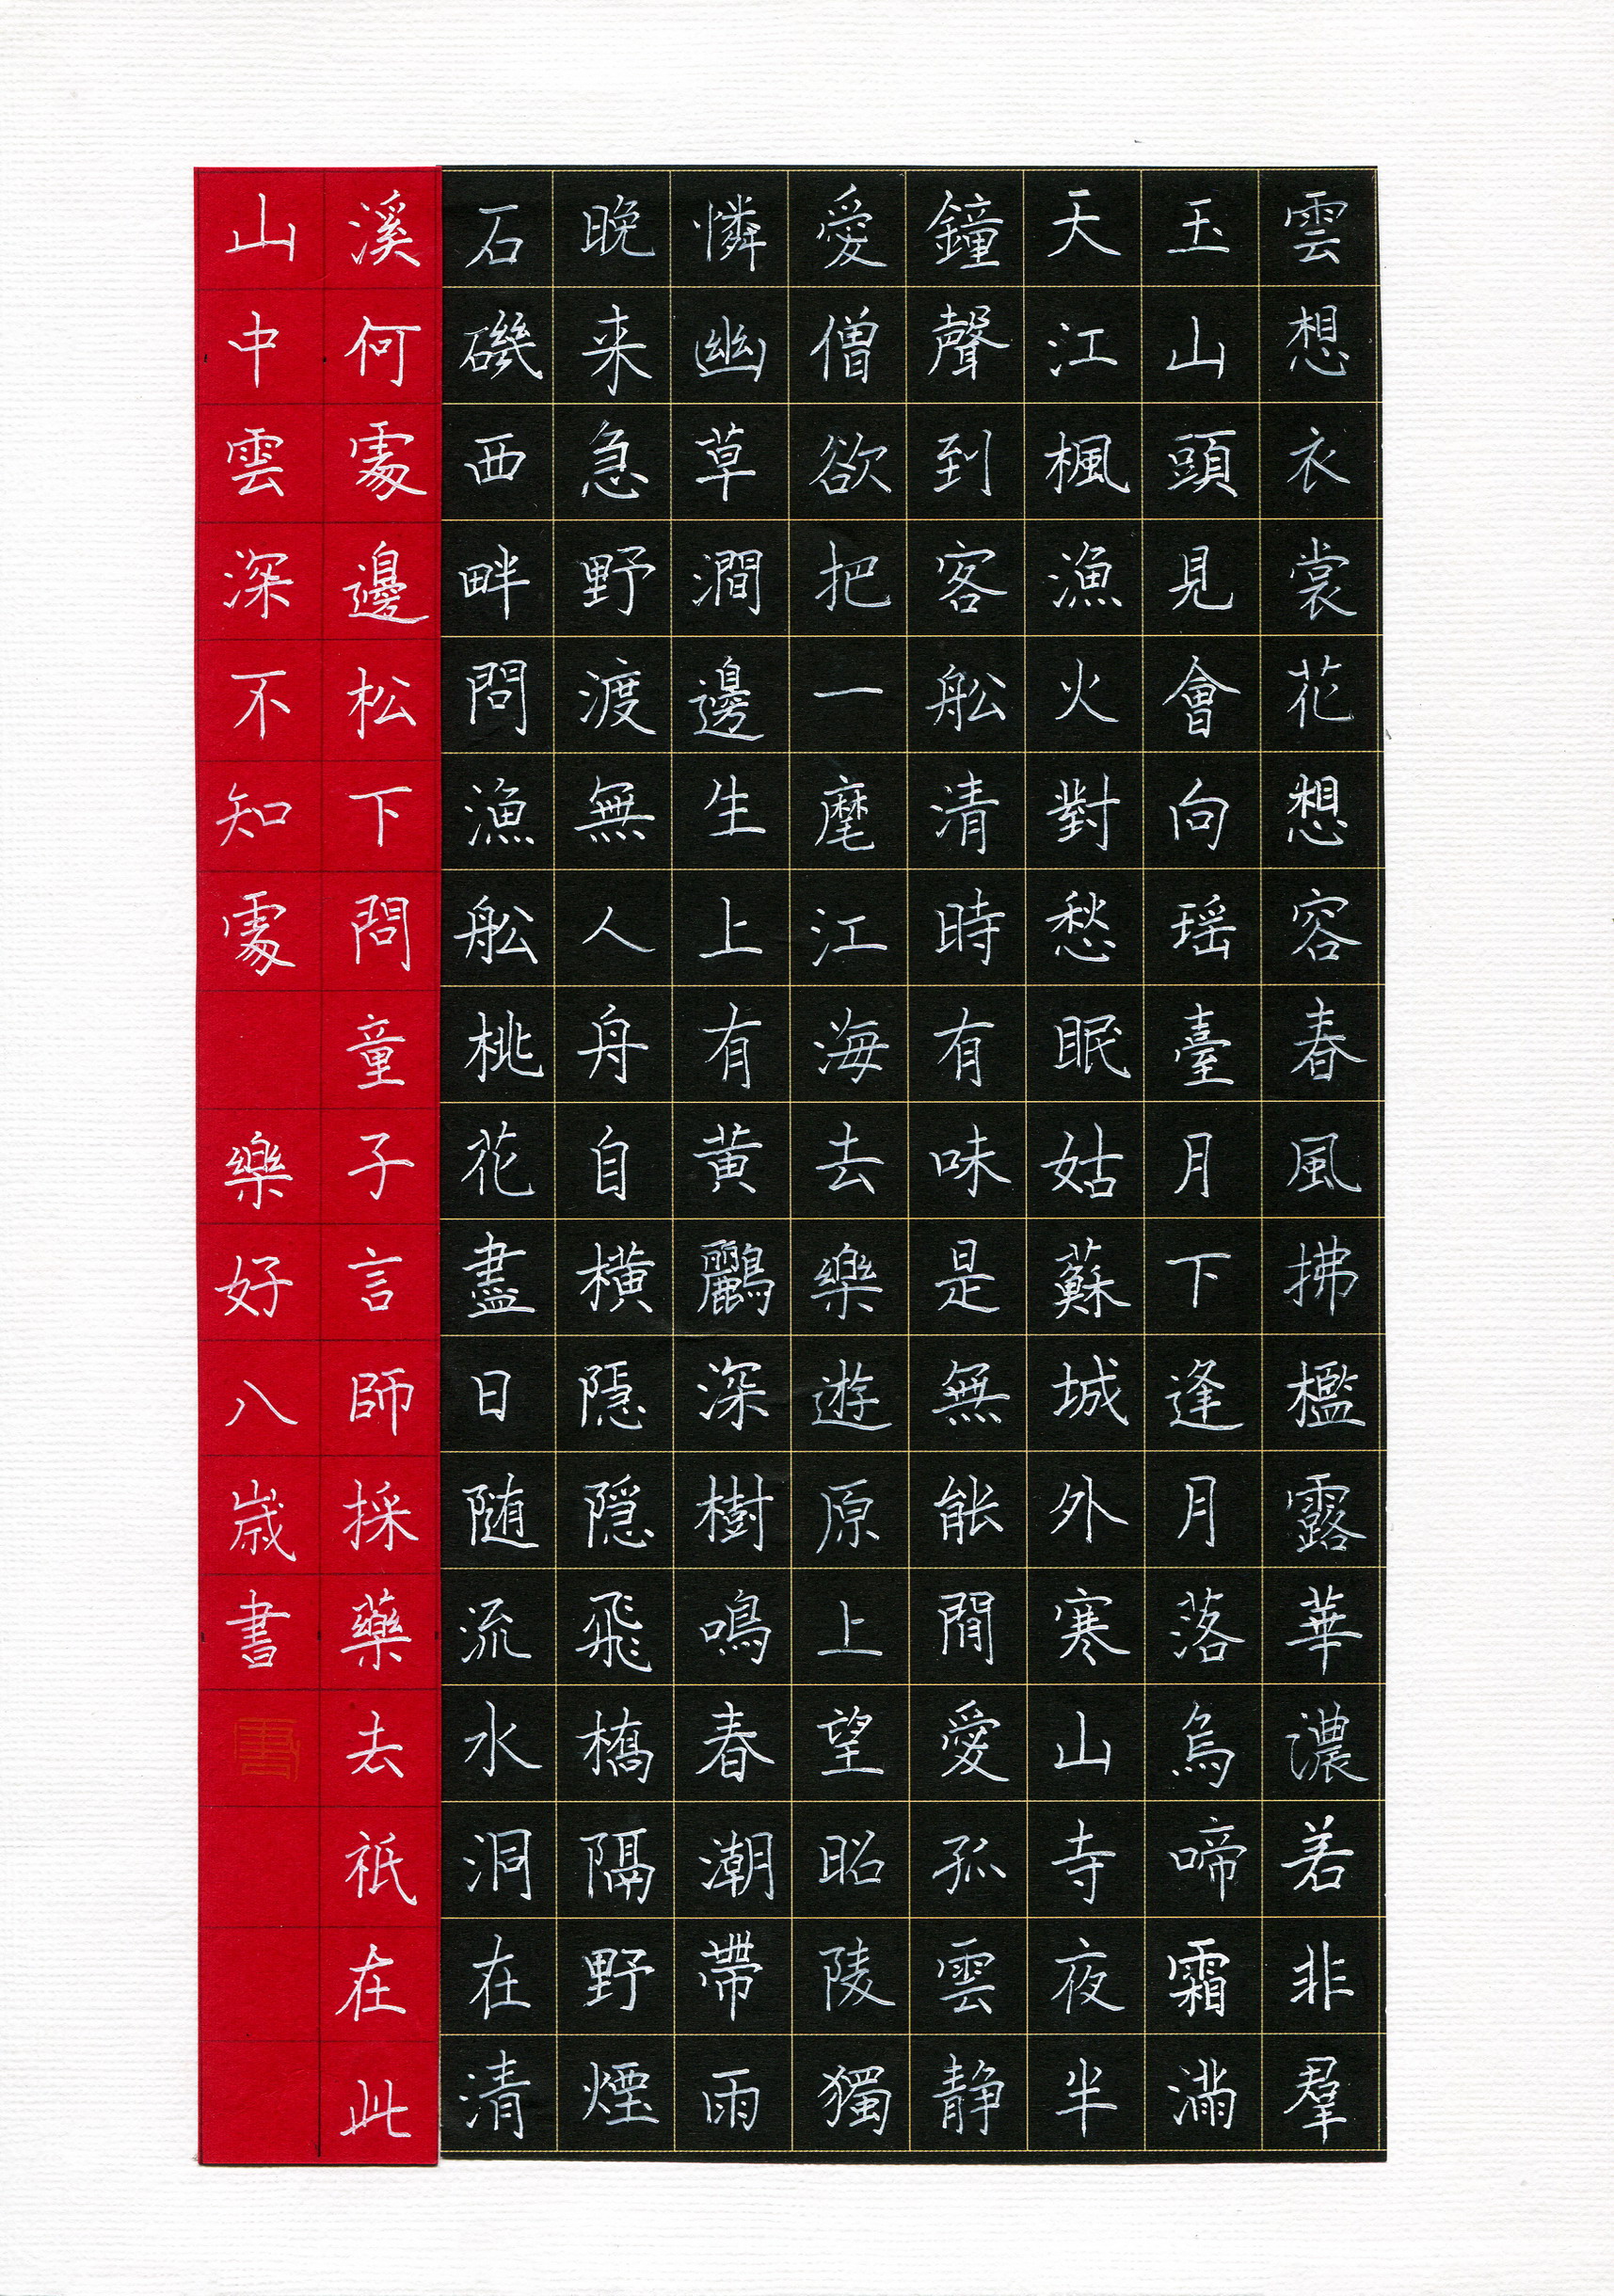 雲想衣裳花想容春風拂檻露華濃若非羣
玉山頭見會向瑶臺月下逢月落烏啼霜滿
天江楓漁火對愁眠姑蘇城外寒山寺夜半
鐘聲到客舩清時有味是無能閒愛孤雲静
愛僧欲把一麾江海去樂遊原上望昭陵獨
憐幽草澗邊生上有黄鸝深樹鳴春潮帶雨
晚来急野渡無人舟自横隱隱飛橋隔野煙
石磯西畔問漁舩桃花盡日随流水洞在清
溪何處邊松下問童子言師採藥去祇在此
山中雲深不知處 樂好八歲書